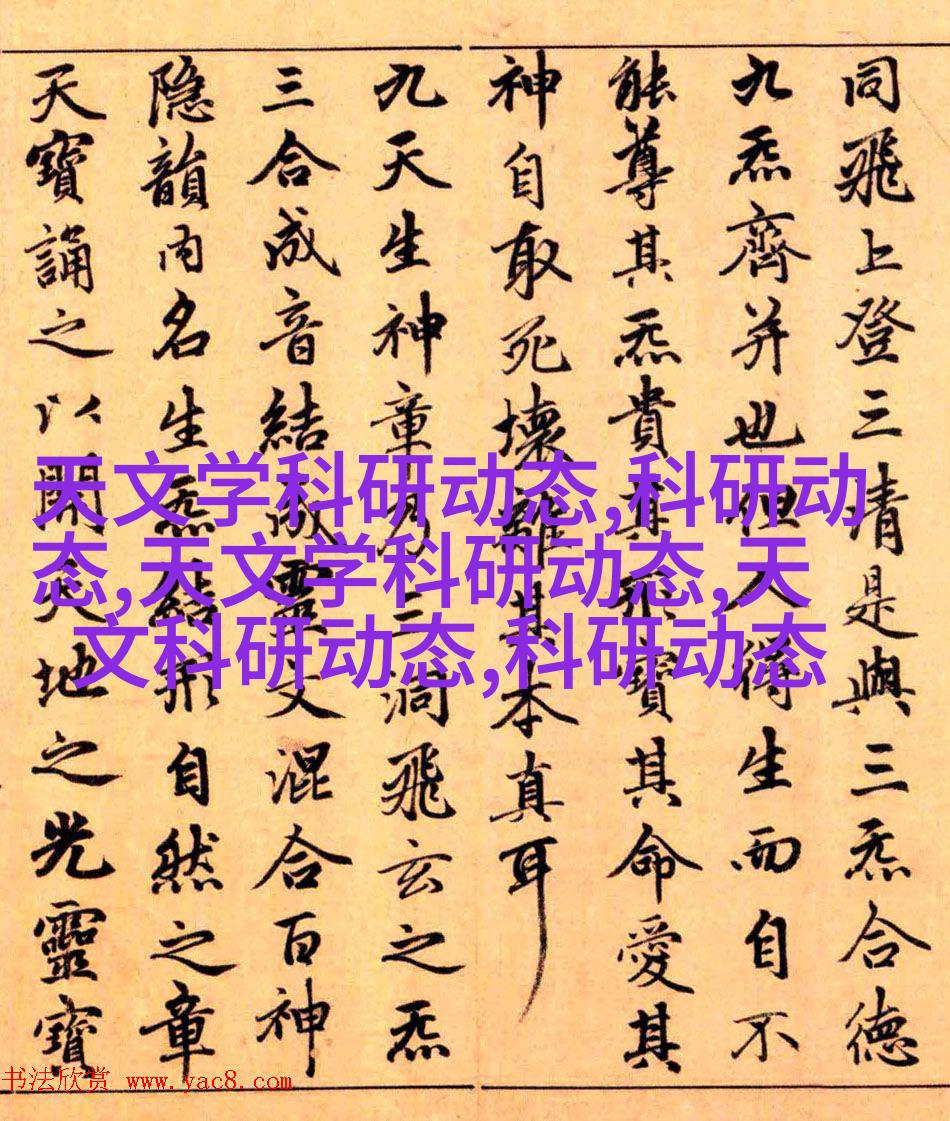 同飛上登三清是與三炁合德
九炁齊并也但人得生而自不
能尊其炁貴其形寶其命愛其
神自取死壞離其本真耳
九天生神章乃三洞飛玄之炁
三合成音結成靈文混合百神
隐韻内名生炁結形自然之章
天寶誦之以開天地之光靈寶
天文学科研动态,科研动
态,天文学科研动态,天
文科研动态,科研动态
书法欣赏 www.yac8.com